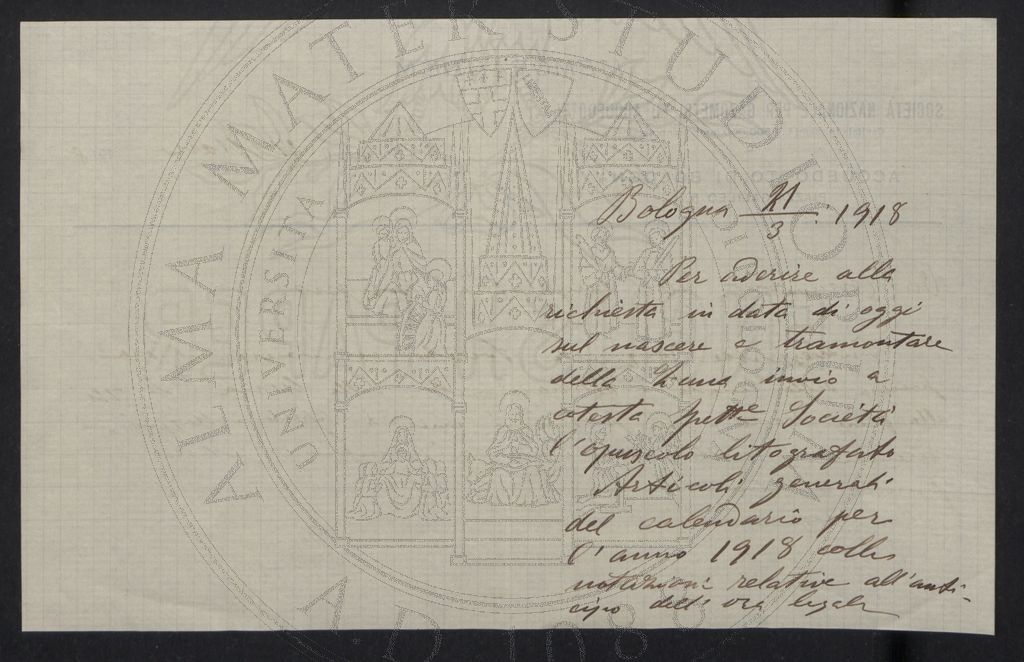 ALMA MATER STUDIORUM
UNIVERSITÀ DI BOLOGNA
A.D. 1088
SOCIETÀ NAZIONALE
Bologna 21/3. 1918
Per aderire alla
richiesta in data di oggi
sul nascere e tramontare
della Luna invio a
cotesta pett.e Società
l'opuscolo litografato
Articoli generali
del calendario per
l'anno 1918 colle
notazioni relative all'anti-
cipo dell'ora legale